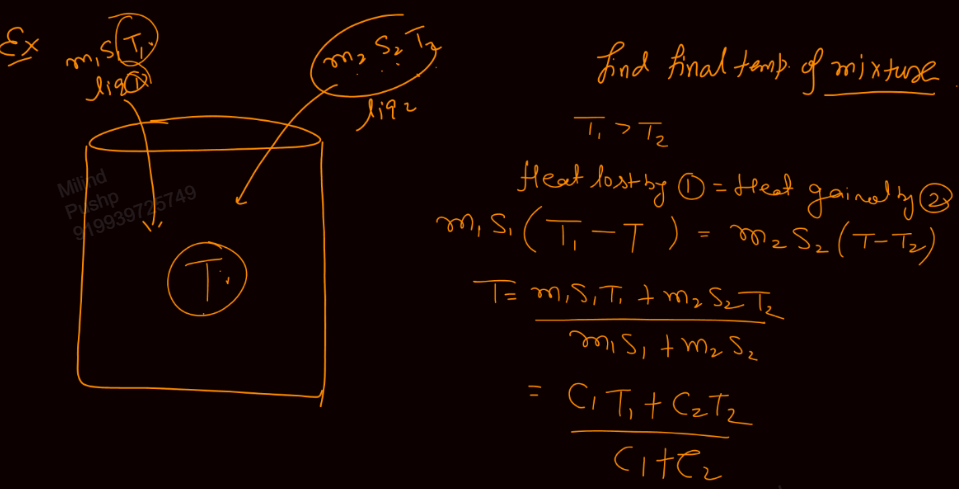 Ex
m₁ S₁ T₁
liq ①
m₂ S₂ T₂
liq 2
Milind
Pushp
919939725749
T
find final temp. of mixture
T₁ > T₂
Heat lost by ① = Heat gained by ②
m₁ S₁ ( T₁ - T ) = m₂ S₂ ( T - T₂ )
T = m₁ S₁ T₁ + m₂ S₂ T₂
m₁ S₁ + m₂ S₂
= C₁ T₁ + C₂ T₂
C₁ + C₂